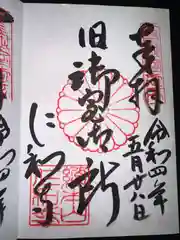 奉拝
令和四年
五月廿八日
旧御室御所
仁和寺